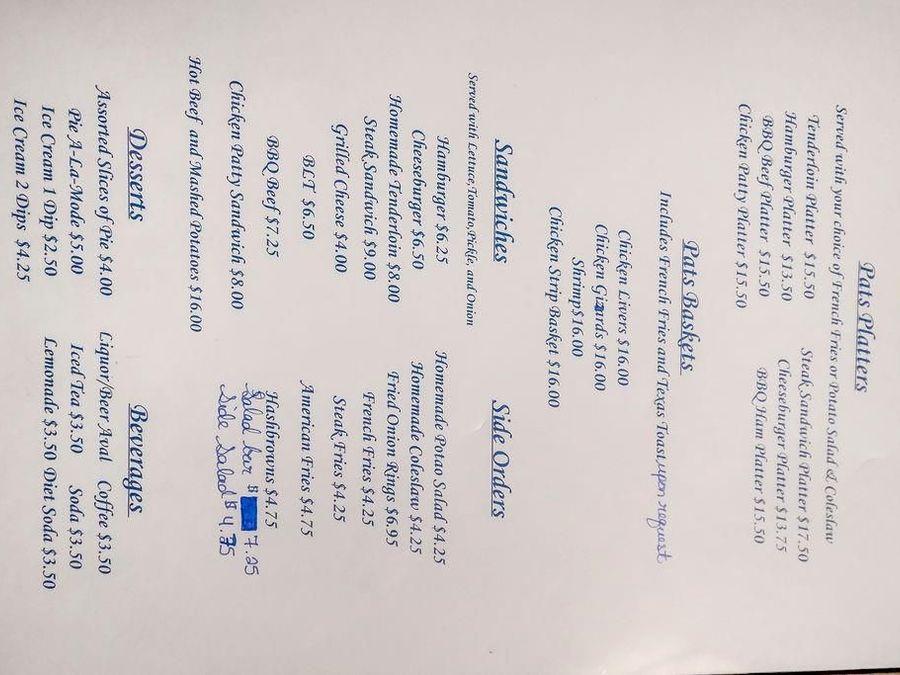 Pats Platters
Served with your choice of French Fries or Potato Salad & Coleslaw
Tenderloin Platter $15.50
Hamburger Platter $13.50
BBQ Beef Platter $15.50
Chicken Patty Platter $15.50
Steak Sandwich Platter $17.50
Cheeseburger Platter $13.75
BBQ Ham Platter $15.50
Pats Baskets
Includes French Fries and Texas Toast upon request
Chicken Livers $16.00
Chicken Gizards $16.00
Shrimp $16.00
Chicken Strip Basket $16.00
Sandwiches
Served with Lettuce,Tomato,Pickle, and Onion
Hamburger $6.25
Cheeseburger $6.50
Homemade Tenderloin $8.00
Steak Sandwich $9.00
Grilled Cheese $4.00
BLT $6.50
BBQ Beef $7.25
Chicken Patty Sandwich $8.00
Hot Beef and Mashed Potatoes $16.00
Side Orders
Homemade Potao Salad $4.25
Homemade Coleslaw $4.25
Fried Onion Rings $6.95
French Fries $4.25
Steak Fries $4.25
American Fries $4.75
Hashbrowns $4.75
Salad bar $ 7.25
Side Salad $4.75
Desserts
Assorted Slices of Pie $4.00
Pie A-La-Mode $5.00
Ice Cream 1 Dip $2.50
Ice Cream 2 Dips $4.25
Beverages
Liquor/Beer Aval Coffee $3.50
Iced Tea $3.50 Soda $3.50
Lemonade $3.50 Diet Soda $3.50